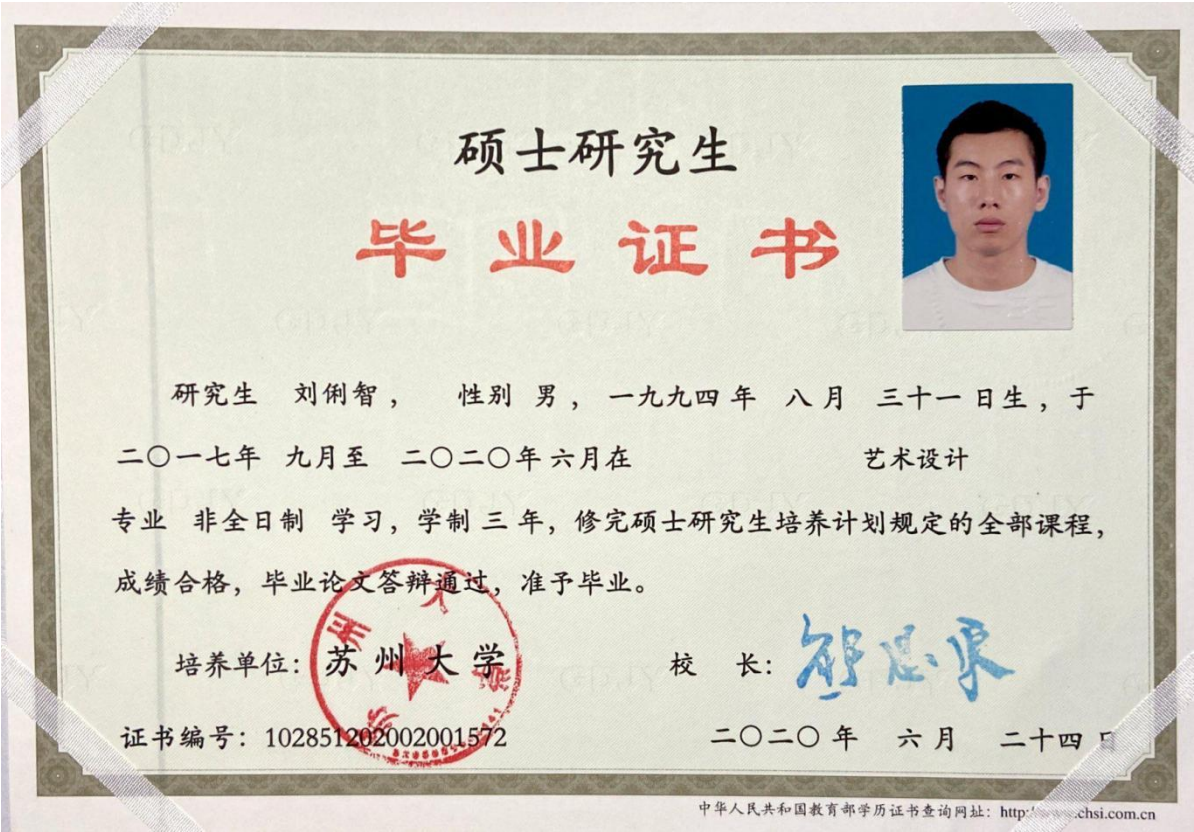 硕士研究生
毕业证书
研究生 刘俐智， 性别 男，一九九四年 八月 三十一日生，于
二〇一七年 九月至 二〇二〇年六月在 艺术设计
专业 非全日制 学习，学制 三 年，修完硕士研究生培养计划规定的全部课程，
成绩合格，毕业论文答辩通过，准予毕业。
培养单位：苏州大学 校 长：熊思东
证书编号：102851202002001572 二〇二〇年 六月 二十四日
中华人民共和国教育部学历证书查询网址：http://www.chsi.com.cn